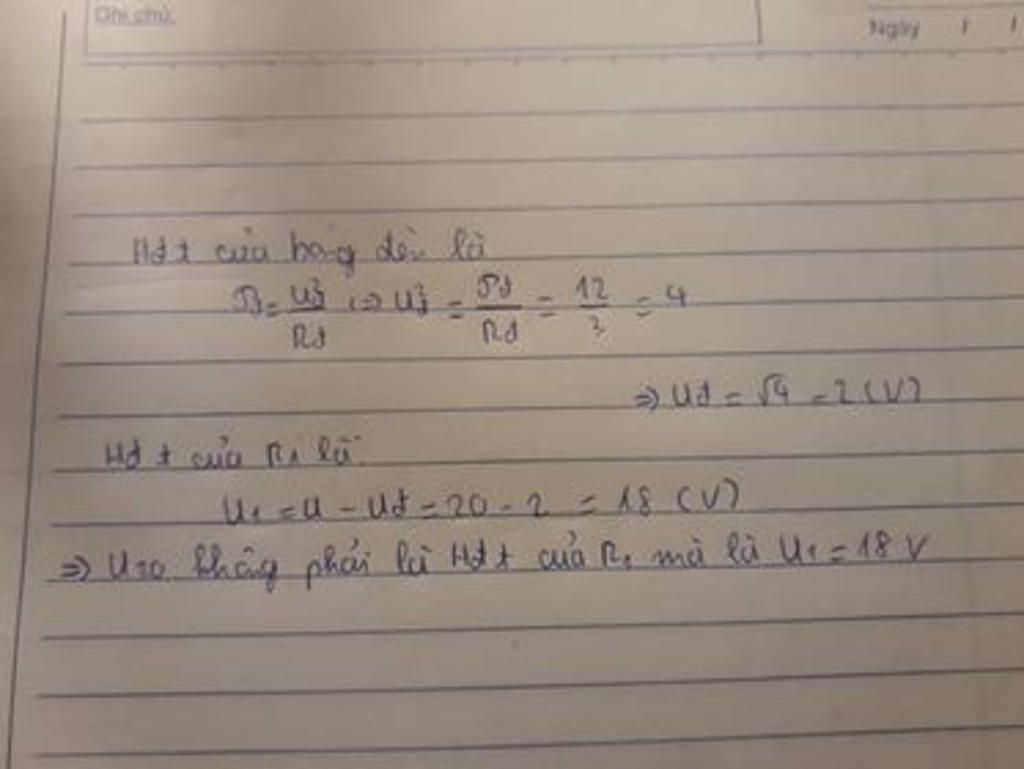 Ghi chú:
Ngày / /
Hđt của bóng đèn là
Pđ = Uđ² / Rđ => Uđ² = Pđ / Rđ = 12 / 3 = 4
=> Uđ = √4 = 2 (V)
Hđt của R₁ là
U₁ = U - Uđ = 20 - 2 = 18 (V)
=> U20 không phải là Hđt của R₁ mà là U₁ = 18 V